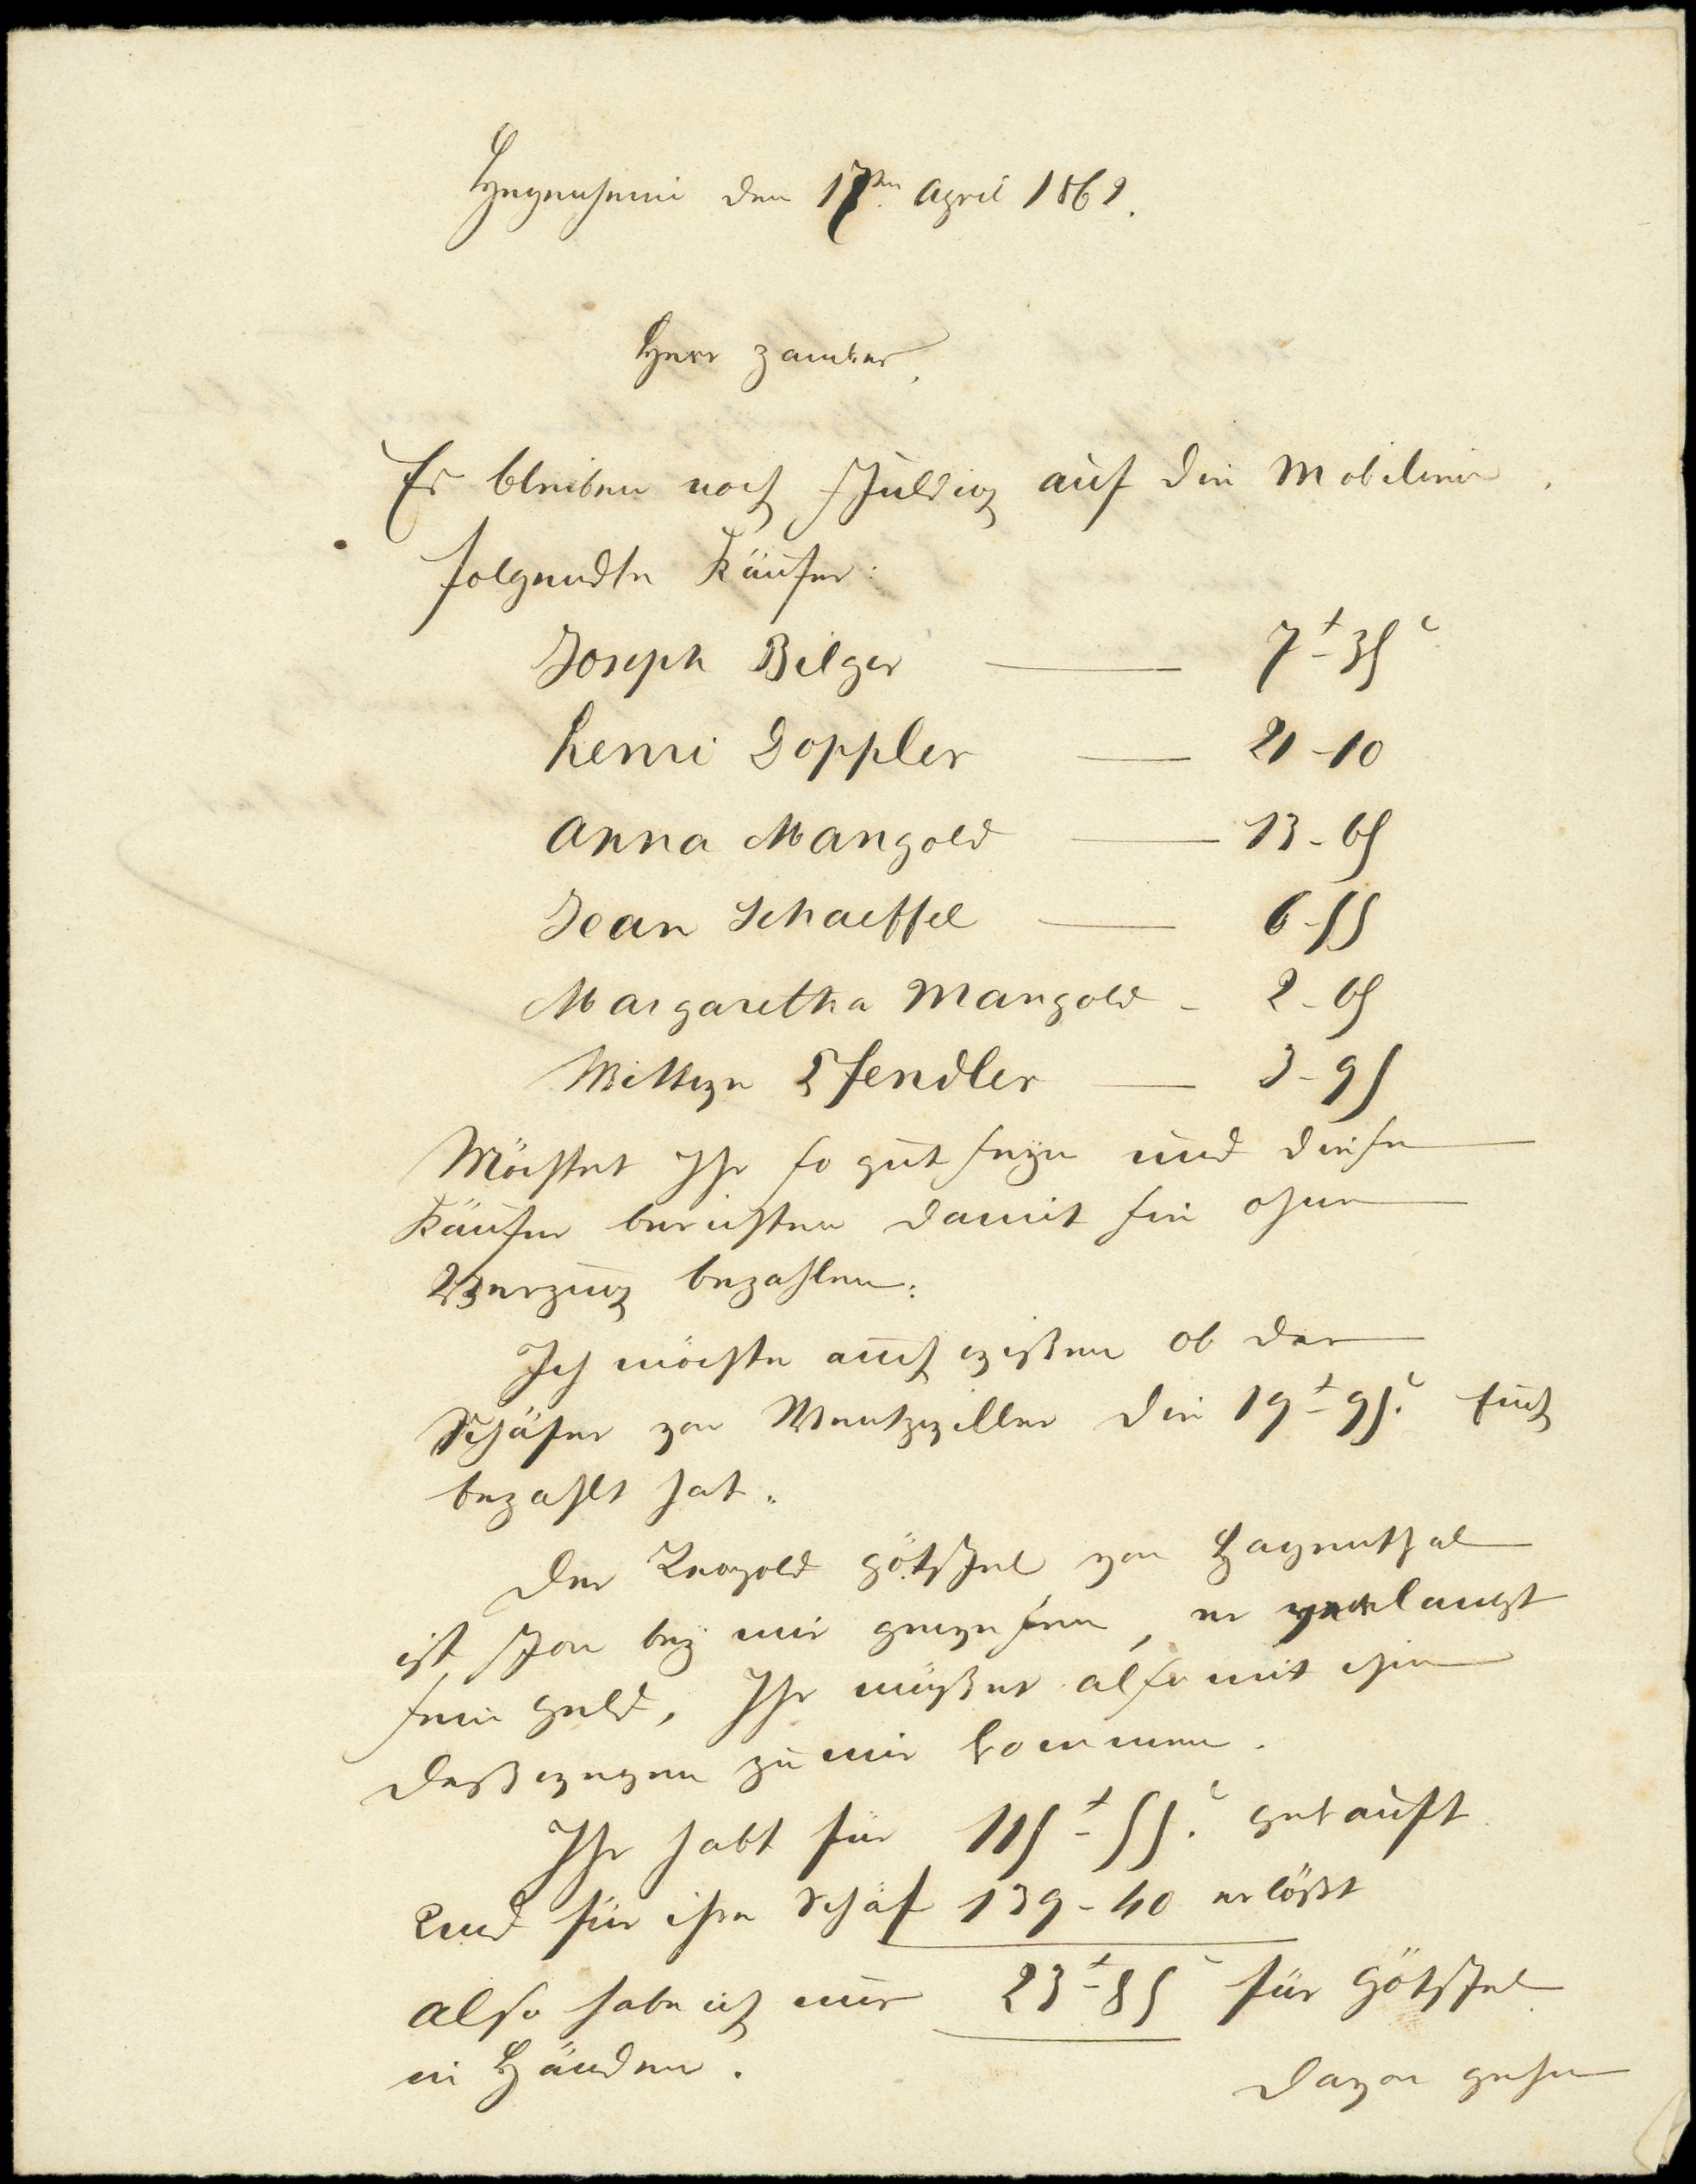 Hegenheim den 17ten April 1862.
Herr Zamber,
Es bleiben noch schuldig auf die Mobilien
folgendte Käufer:
Joseph Bilger — 7f-35c
henri Doppler — 21-10
Anna Mangold — 13-65
Jean Schaeffel — 6-55
Margaretha Mangold - 2-65
Wittwe Pfendler — 3-95
Möchtet Ihr so gut seyn und diese
Käufer berichten damit sie ohne
Verzug bezahlen.
Ich möchte auch wißen ob der
Schäfer von Wentzwiller die 19f-95c. Euch
bezahlt hat.
Der Leopold Götschel von Hagenthal
ist schon bey mir gewesen, er verlangt
sein Geld, Ihr müßet also mit ihm
deßwegen zu mir kommen.
Ihr habt für 115f-55c. gekauft
Und für ihre Schaf 139-40 erlößt
also habe ich nur 23f-85c für Götschel
in Händen.
davon gehen